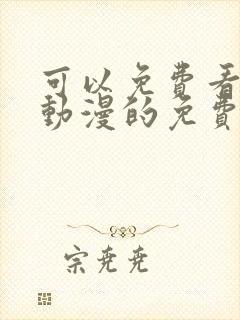 可以免費看
動漫的免費
宗尭尭